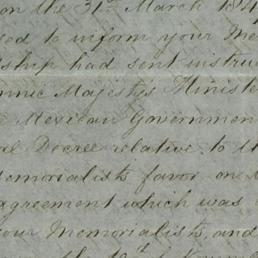 on the 31st March 184
sed to inform your Me
ship had sent instruc
annic Majestys Ministe
Mexican Governmen
al Decree relative to th
emorialists favor on
agreement which was
our Memorialists, and